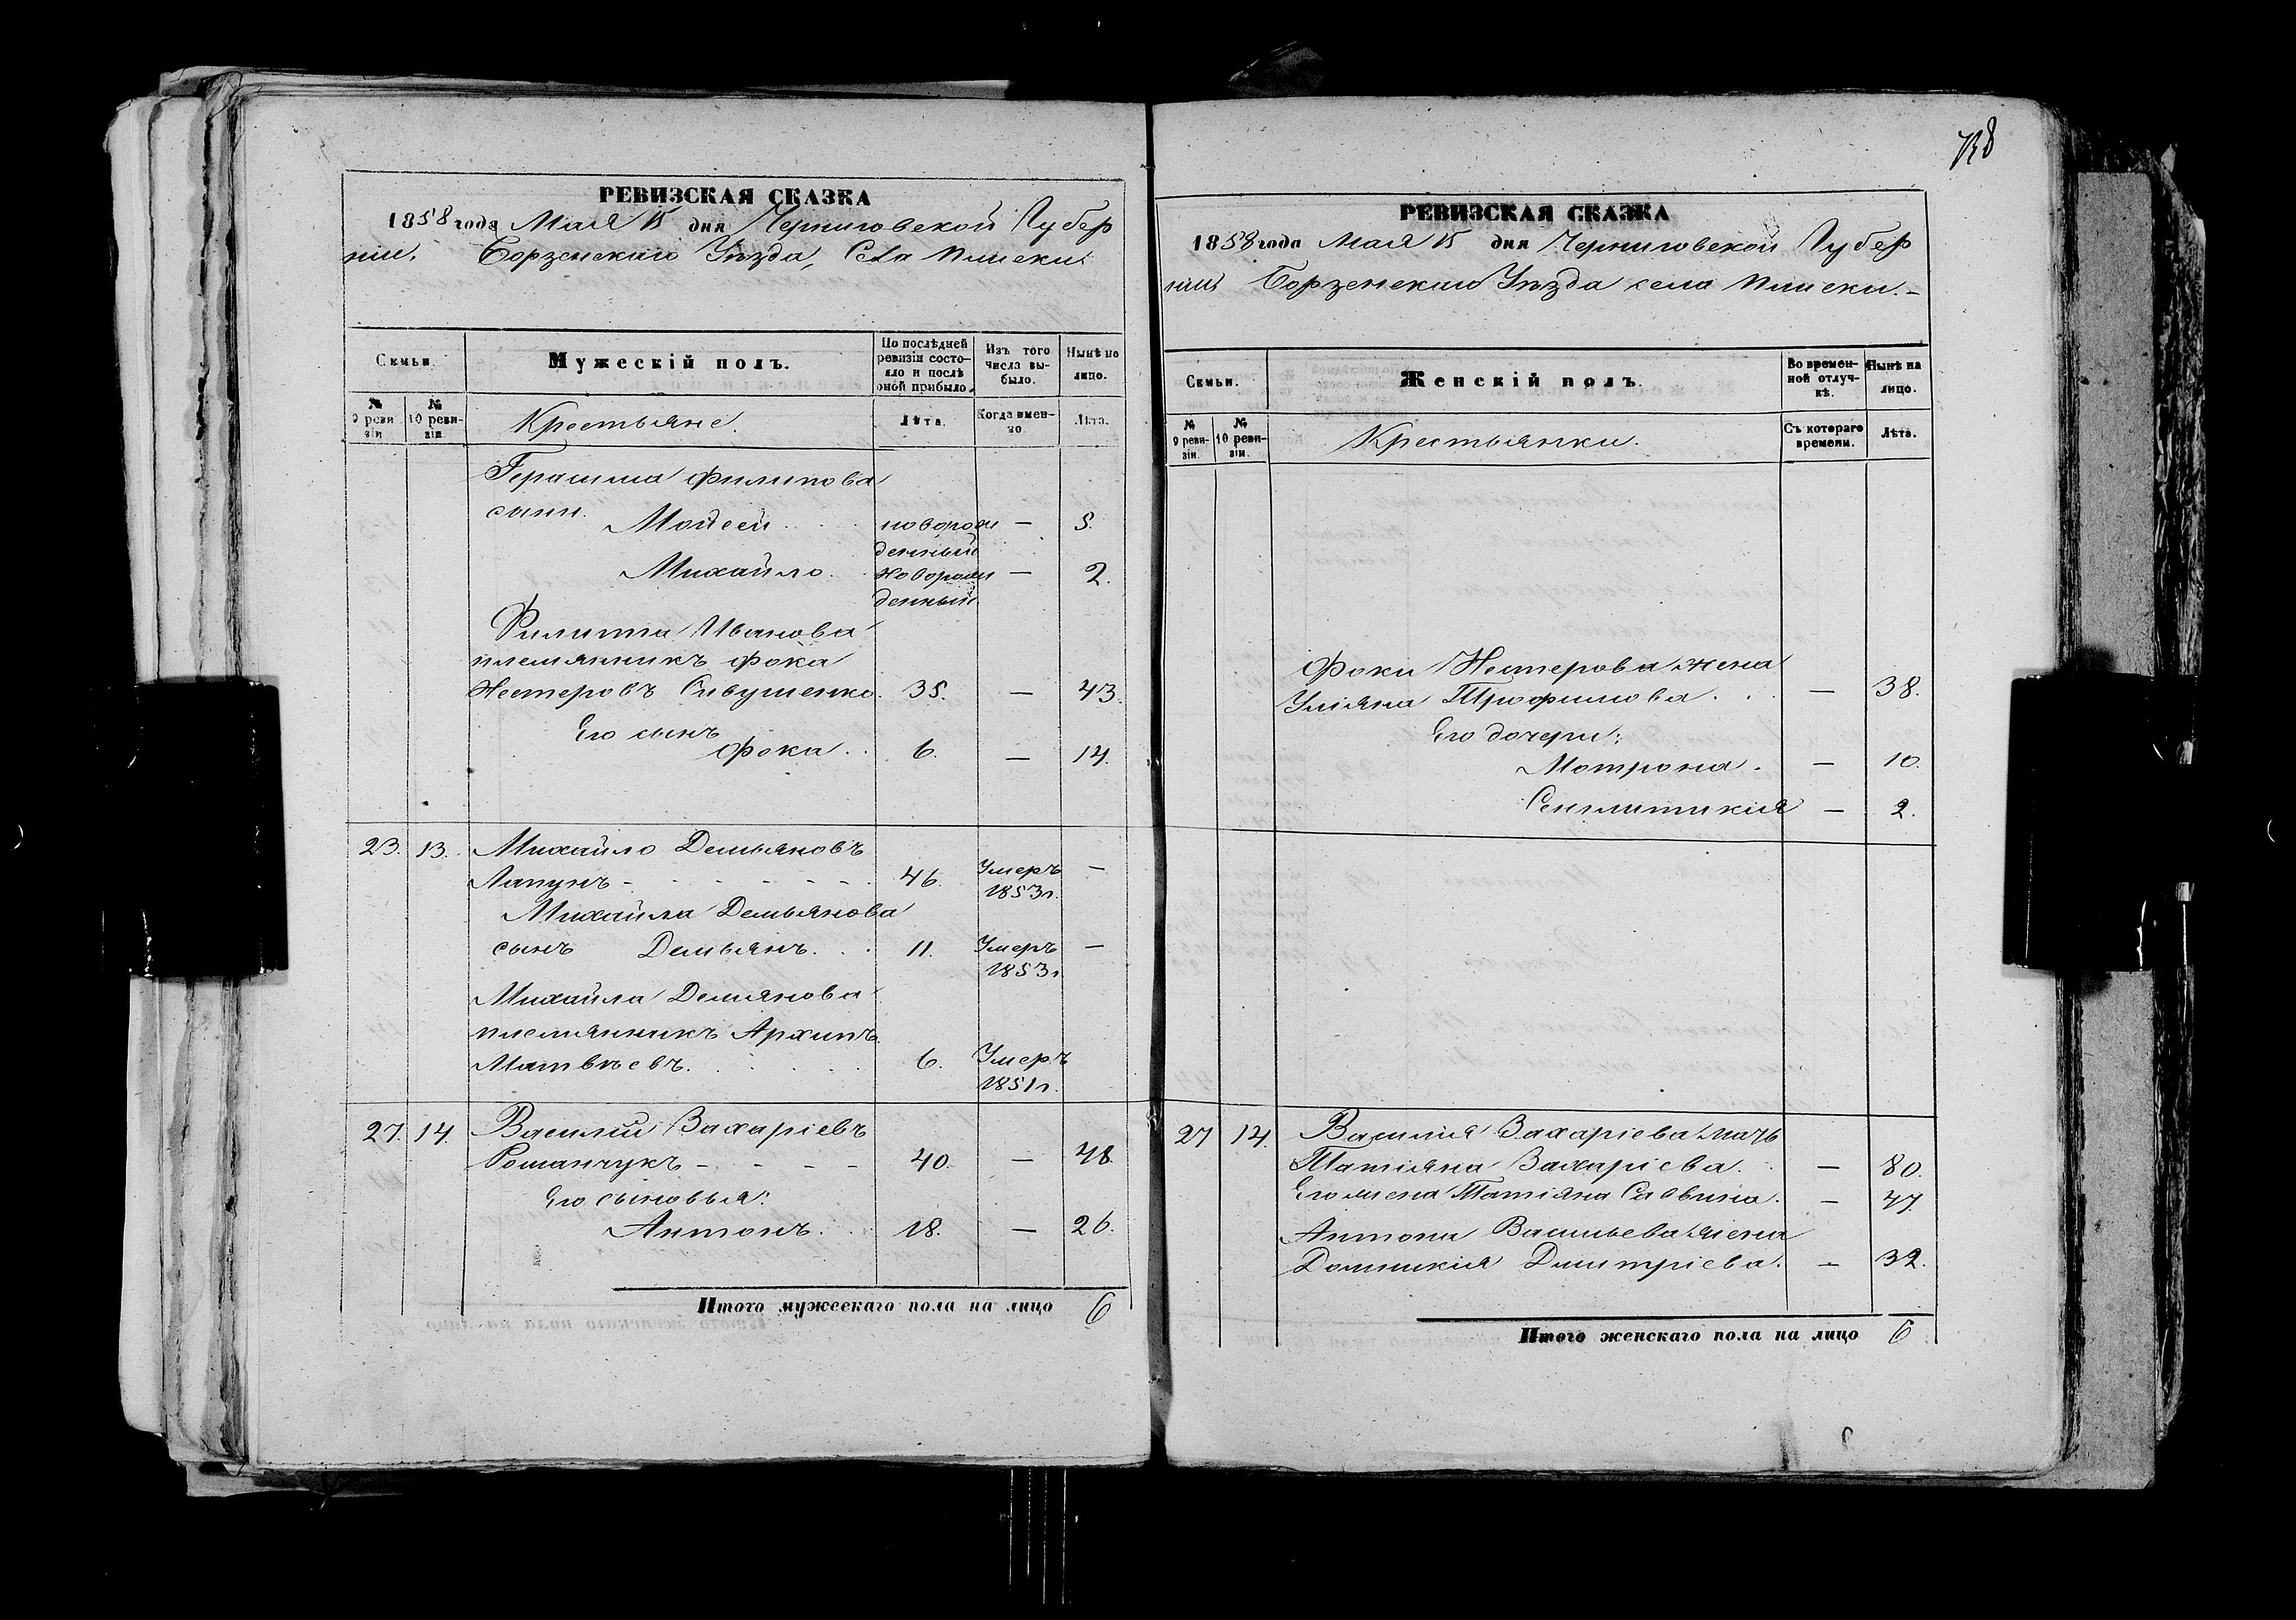 РЕВИЗСКАЯ СКАЗКА
1858 года Мая 15 дня Черниговской Губер
ніи, Борзенскаго Уѣзда, Села Плиски.
Семьи.
Мужескій полъ.
По послѣдней ревизіи состояло и послѣ оной прибыло.
Изъ того числа выбыло.
Нынѣ на лицо.
№ 9 ревизіи
№ 10 ревизіи
Крестьяне.
Лѣта.
Когда именно.
Лѣта.
Герасима Филипова
сыни.
Мойсей новорож — 5.
денный
Михайло. новорож — 2.
денный
Филиппа Иванова
племянникъ Фока
Нестеровъ Сивушенко. 35. — 43.
Его сынъ
Фока. 6. — 14.
23. 13. Михайло Демьяновъ
Лапунъ 46. Умеръ —
1853 г.
Михайла Демьянова
сынъ Демьянъ. 11. Умеръ —
1853 г.
Михайла Демянова
племянникъ Архипъ
Матвѣевъ. 6. Умеръ
1851 г.
27. 14. Василій Захаріевъ
Романчукъ 40. — 48.
Его сыновья:
Антонъ. 18. — 26.
Итого мужескаго пола на лицо 6
РЕВИЗСКАЯ СКАЗКА
1858 года Мая 15 дня Черниговской Губер
ніи Борзенскаго Уѣзда села Плиски.
Семьи.
Женскій полъ.
Во временной отлучкѣ.
Нынѣ на лицо.
№ 9 ревизіи.
№ 10 ревизіи.
Крестьянки.
Съ котораго времени.
Лѣта.
Фоки Нестерова жена
Уліяна Трофимова. — 38.
Его дочери:
Мотрона. — 10.
Сенклитикія — 2.
27 14. Василія Захаріева мать
Татіяна Захаріева. — 80.
Его жена Татіяна Саввина. — 47.
Антона Васильева жена
Домникія Дмитріева. — 32.
Итого женскаго пола на лицо 6